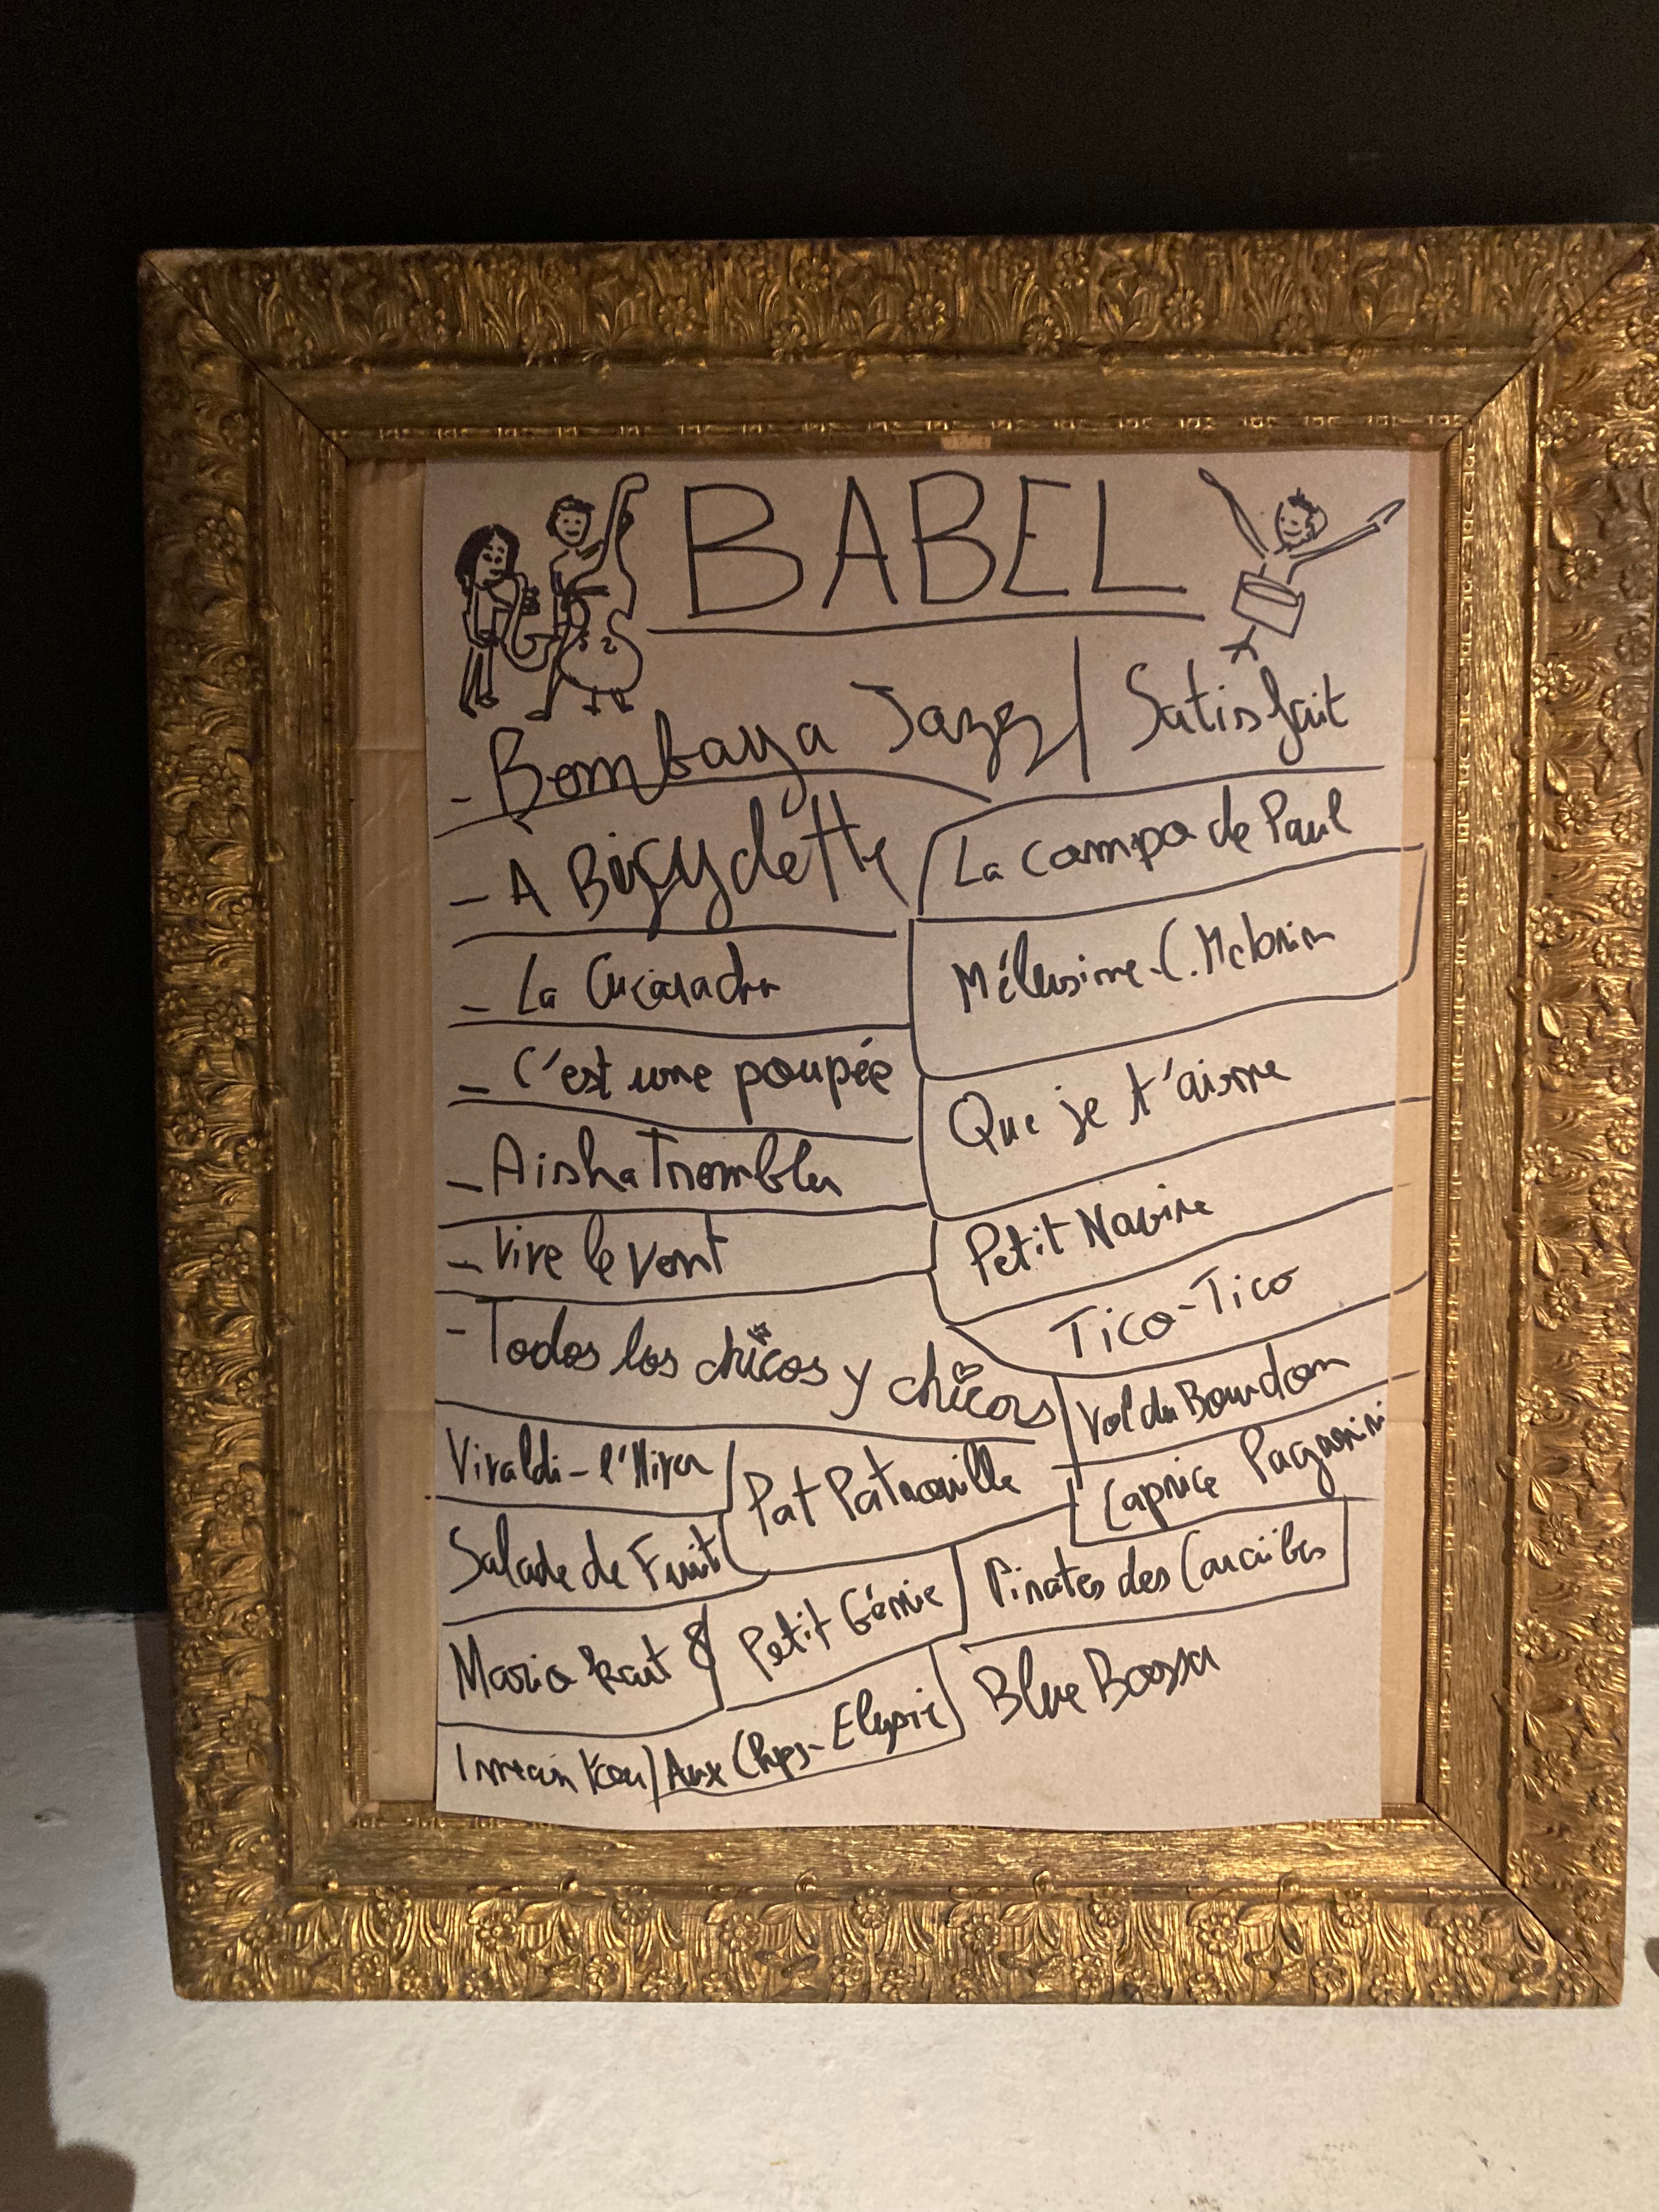 BABEL
- Bombaya Jazz / Satisfait
- À Bicyclette
La Campa de Paul
- La Cucaracha
Mélusine - C.
- C'est une poupée
Que je t'aisme
- Aisha Trembler
- Vive le vent
Petit Navire
Tico-Tico
- Todos los chicos y chicas
Vol du Bourdon
Vivaldi - l'Hiver
Pat Patrouille
Caprice Paganini
Salade de Fruit
Pirates des Caraïbes
Mario kart 8
Petit Génie
Blue Bossa
Aux Chps-Elysée